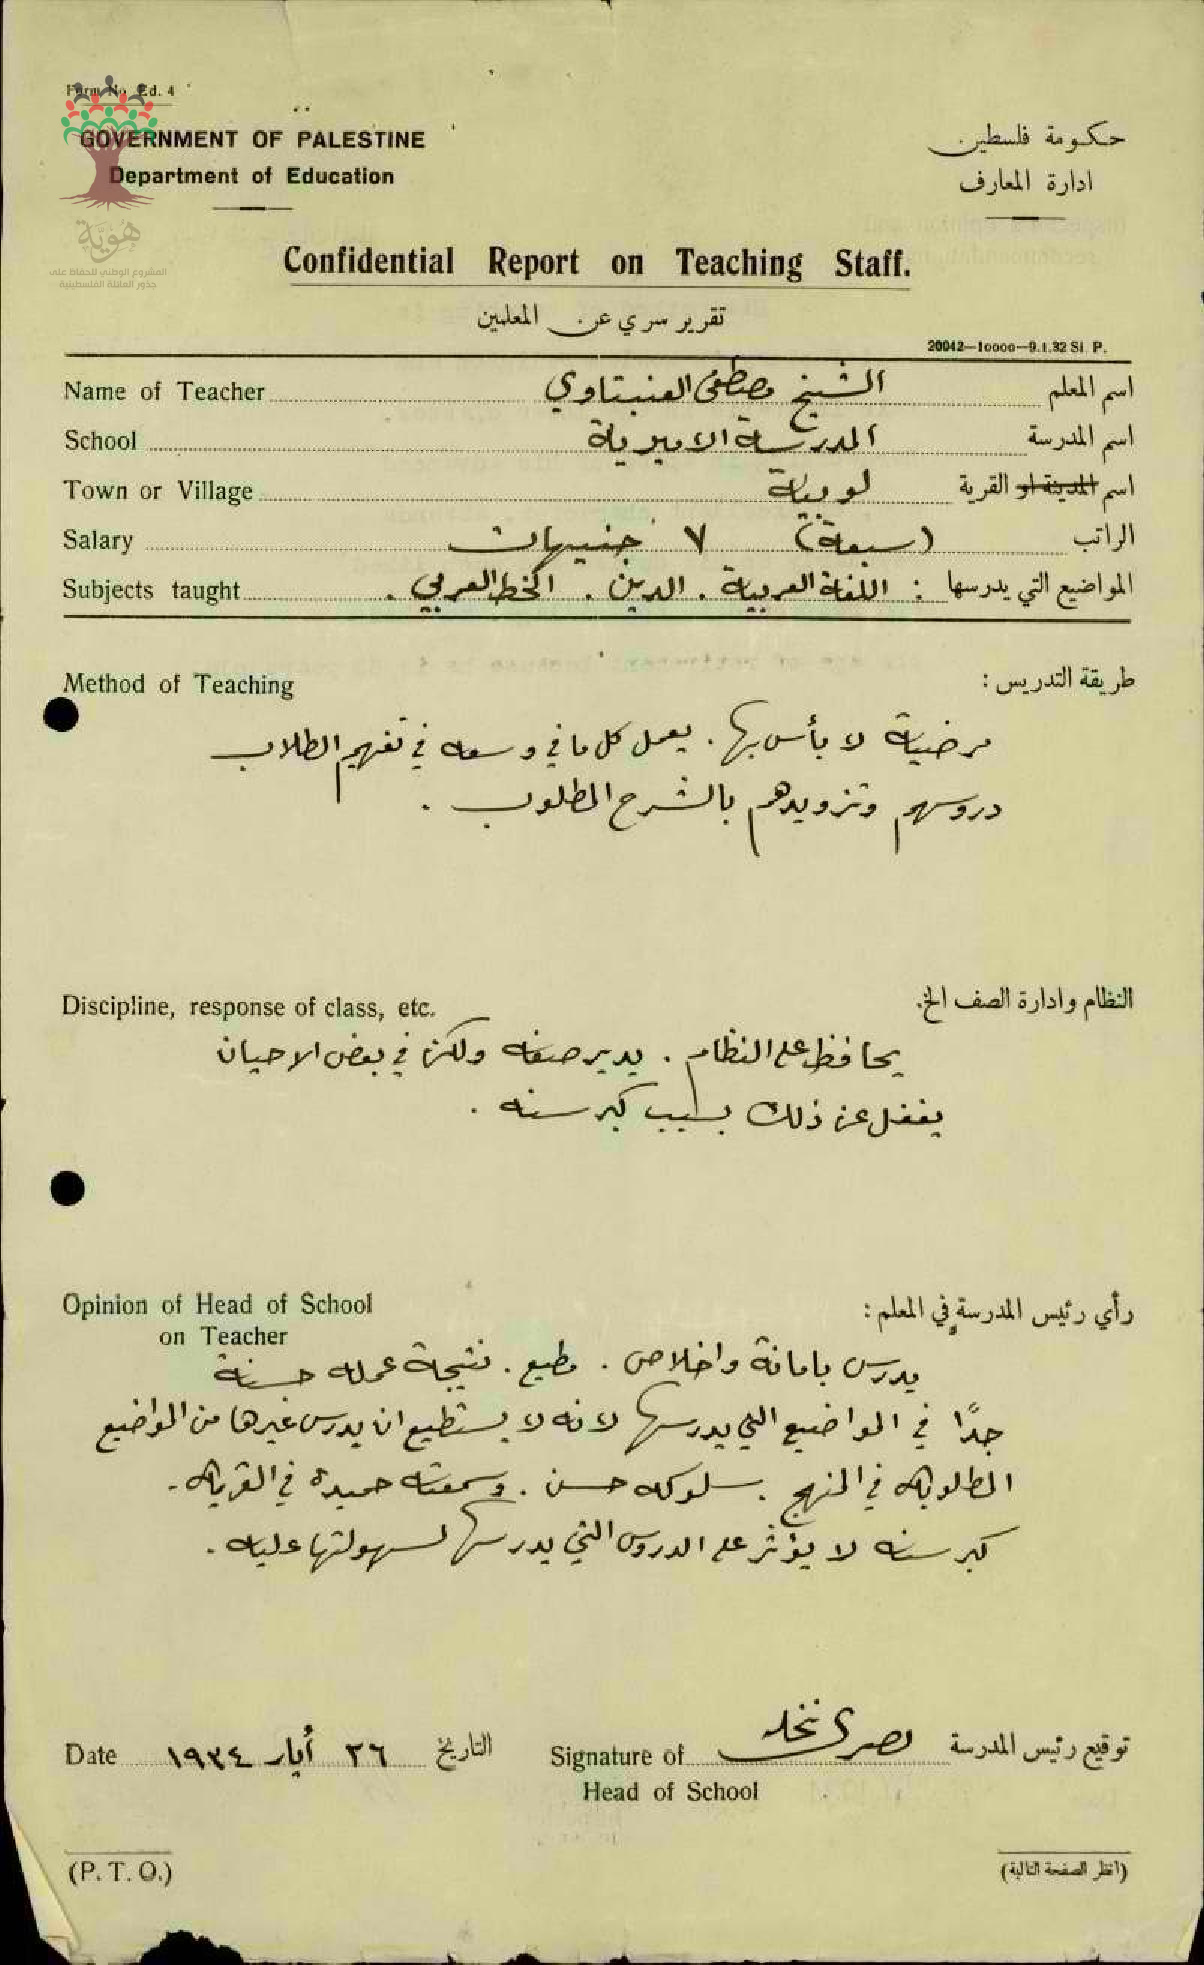 Form No. Ed. 4
GOVERNMENT OF PALESTINE
Department of Education
حكومة فلسطين
ادارة المعارف
هُوِيَّة
المشروع الوطني للحفاظ على
جذور العائلة الفلسطينية
Confidential Report on Teaching Staff.
تقرير سري عن المعلمين
20042—10000—9.1.32 Sl. P.
Name of Teacher الشيخ مصطفى العنبتاوي اسم المعلم
School المدرسة الاميرية اسم المدرسة
Town or Village لوبية اسم المدينة او القرية
Salary (سبعة) ٧ جنيهات الراتب
Subjects taught اللغة العربية . الدين . الخط العربي . المواضيع التي يدرسها :
Method of Teaching طريقة التدريس :
مرضية لا بأس بها . يعمل كل ما في وسعه في تفهيم الطلاب
دروسهم وتزويدهم بالشرح المطلوب .
Discipline, response of class, etc. النظام وادارة الصف الخ.
يحافظ على النظام . يدير صفه ولكن في بعض الاحيان
يغفل عن ذلك بسبب كبر سنه .
Opinion of Head of School رأي رئيس المدرسة في المعلم :
on Teacher
يدرس بامانة واخلاص . مطيع . نتيجة عمله حسنة
جدًا في المواضيع التي يدرسها لانه لا يستطيع ان يدرس غيرها من المواضيع
المطلوبة في المنهج . سلوكه حسن . وسمعته حميدة في القرية .
كبر سنه لا يؤثر على الدروس التي يدرسها لسهولتها عليه .
Date ٢٦ أيار ١٩٣٤ التاريخ
Signature of نصري توقيع رئيس المدرسة
Head of School
(P. T. O.) (انظر الصفحة التالية)